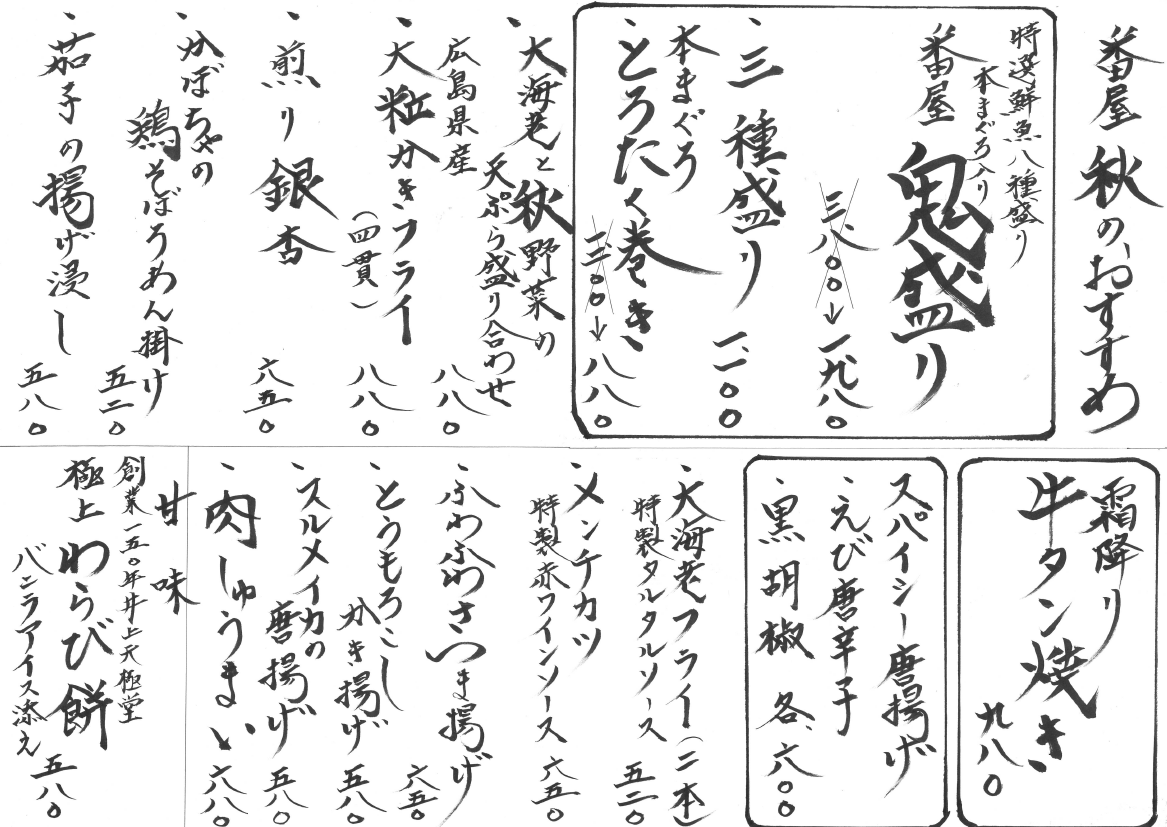 番屋 秋の、おすすめ
特選鮮魚八種盛り
本まぐろ入り
番屋 鬼盛り
三八〇〇→一九八〇
・三種盛り 一二〇〇
本まぐろ
・とろたく巻き
一三〇〇→八八〇
・大海老と秋野菜の
天ぷら盛り合わせ 八八〇
広島県産
・大粒かきフライ
(四貫) 八八〇
・煎り銀杏 六五〇
・かぼちゃの
鶏そぼろあん掛け 五二〇
・茄子の揚げ浸し 五八〇
霜降り
牛タン焼き 九八〇
スパイシー唐揚げ
・えび唐辛子
・黒胡椒 各、六〇〇
・大海老フライ(二本)
特製タルタルソース 五二〇
・メンチカツ
特製赤ワインソース 六五〇
・ふわふわさつま揚げ 六五〇
・とうもろこし
かき揚げ 五八〇
・スルメイカの
唐揚げ 五八〇
・肉しゅうまい 六八〇
甘味
創業一五〇年井上天極堂
極上わらび餅
バニラアイス添え 五八〇